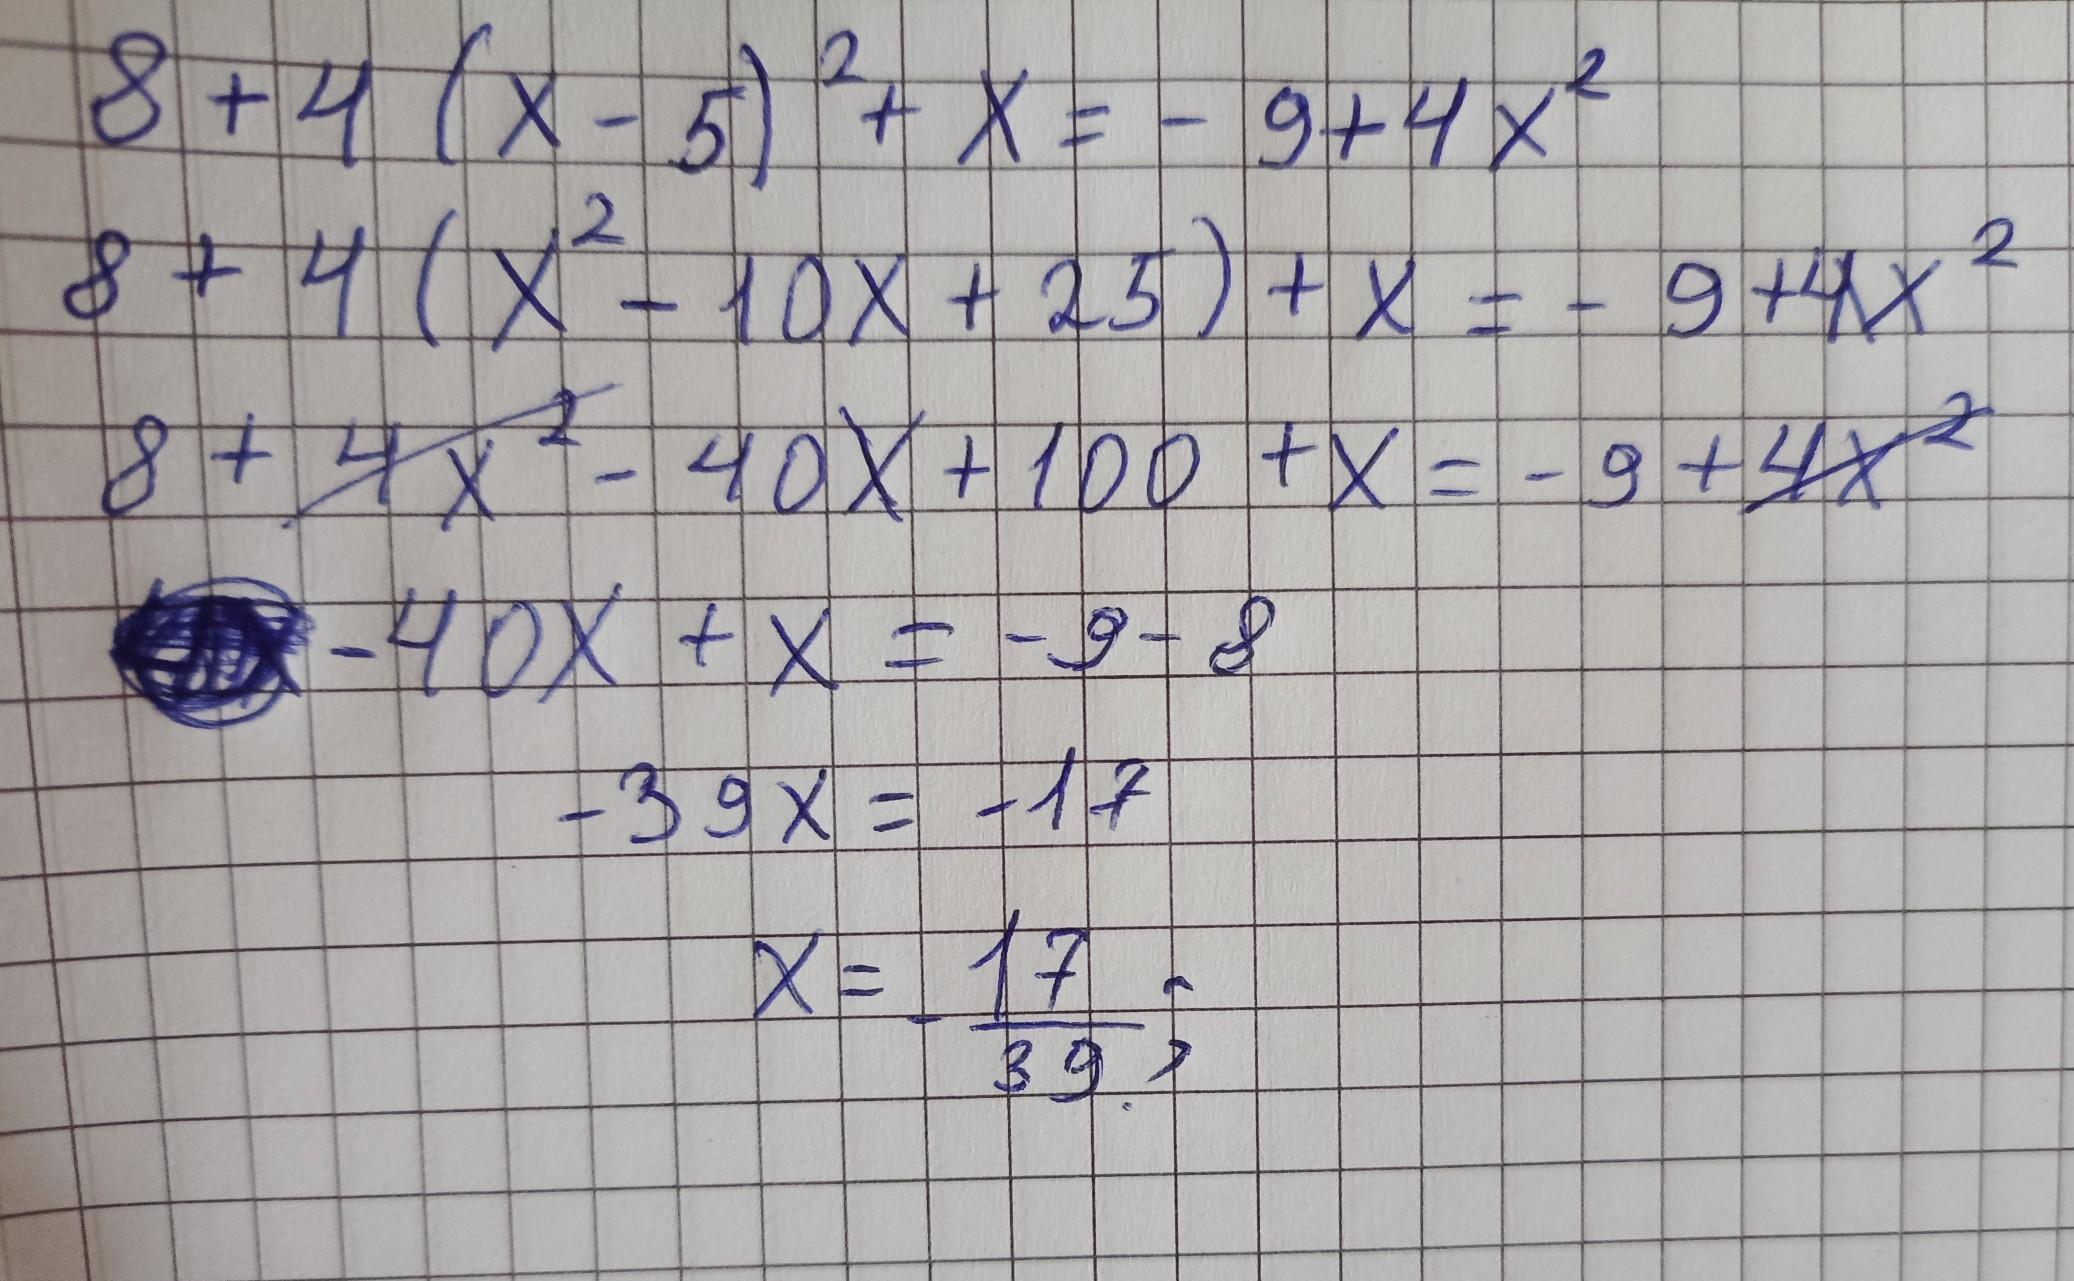 8 + 4 (x - 5)² + x = - 9 + 4x²
8 + 4 (x² - 10x + 25) + x = - 9 + 4x²
8 + 4x² - 40x + 100 + x = - 9 + 4x²
- 40x + x = - 9 - 8
- 39x = - 17
x = - 17/39 ;